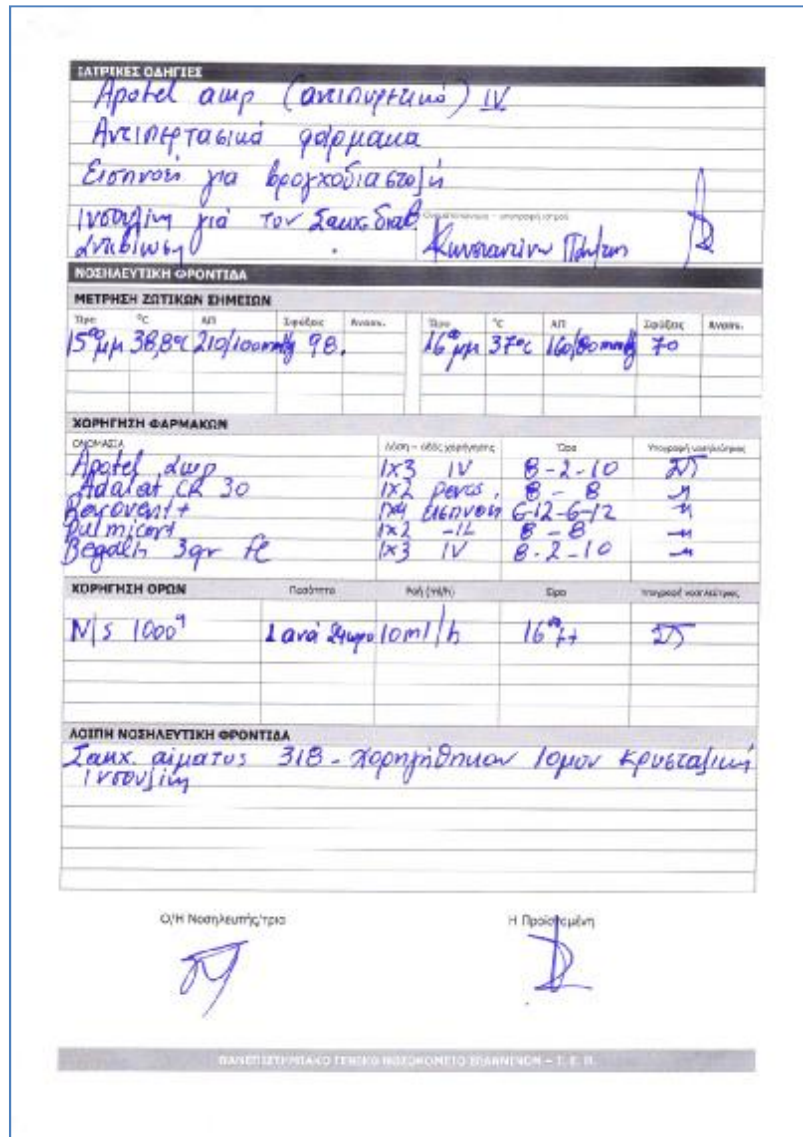 ΙΑΤΡΙΚΕΣ ΟΔΗΓΙΕΣ
Apotel αμρ (αντιπυρετικό) IV
Αντιπερτασικά φάρμακα
Εισπνοή για βρογχοδιαστολή
Ινσουλίνη γιά τον Σακχ. διαβ
Ονοματεπώνυμο - υπογραφή ιατρού
Αντιβίωση
ΝΟΣΗΛΕΥΤΙΚΗ ΦΡΟΝΤΙΔΑ
ΜΕΤΡΗΣΗ ΖΩΤΙΚΩΝ ΣΗΜΕΙΩΝ
Ώρα °C ΑΠ Σφύξεις Αναπν. Ώρα °C ΑΠ Σφύξεις Αναπν.
15⁰⁰ μμ 38,8°C 210/100mmHg 98. 16⁰⁰ μμ 37°C 160/80mmHg 70
ΧΟΡΗΓΗΣΗ ΦΑΡΜΑΚΩΝ
ΟΝΟΜΑΣΙΑ Δόση - οδός χορήγησης Ώρα Υπογραφή νοσηλεύτριας
Apotel αμρ 1x3 IV 8-2-10
Adalat CR 30 1x2 8-8
1x4 εισπνοή 6-12-6-12
Pulmicort 1x2 8-8
Begalin 3gr 1x3 IV 8-2-10
ΧΟΡΗΓΗΣΗ ΟΡΩΝ Ποσότητα Ροή (ml/h) Ώρα Υπογραφή νοσηλεύτριας
N/S 1000 1 ανά 24ωρο 10ml/h 16⁰⁰
ΛΟΙΠΗ ΝΟΣΗΛΕΥΤΙΚΗ ΦΡΟΝΤΙΔΑ
Σακχ. αίματος 318 - Χορηγήθηκαν 10μον κρυσταλική
Ινσουλίνη
Ο/Η Νοσηλευτής/τρια Η Προϊσταμένη
ΠΑΝΕΠΙΣΤΗΜΙΑΚΟ ΓΕΝΙΚΟ ΝΟΣΟΚΟΜΕΙΟ ΙΩΑΝΝΙΝΩΝ - Τ. Ε. Π.